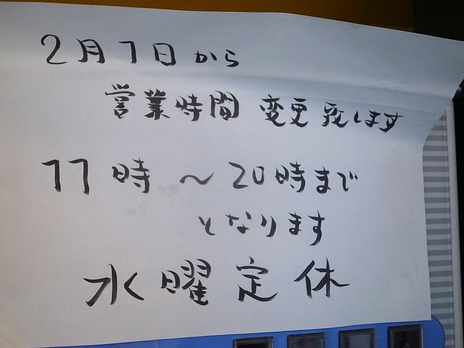 2月1日から
営業時間 変更致します
11時～20時まで
となります
水曜定休